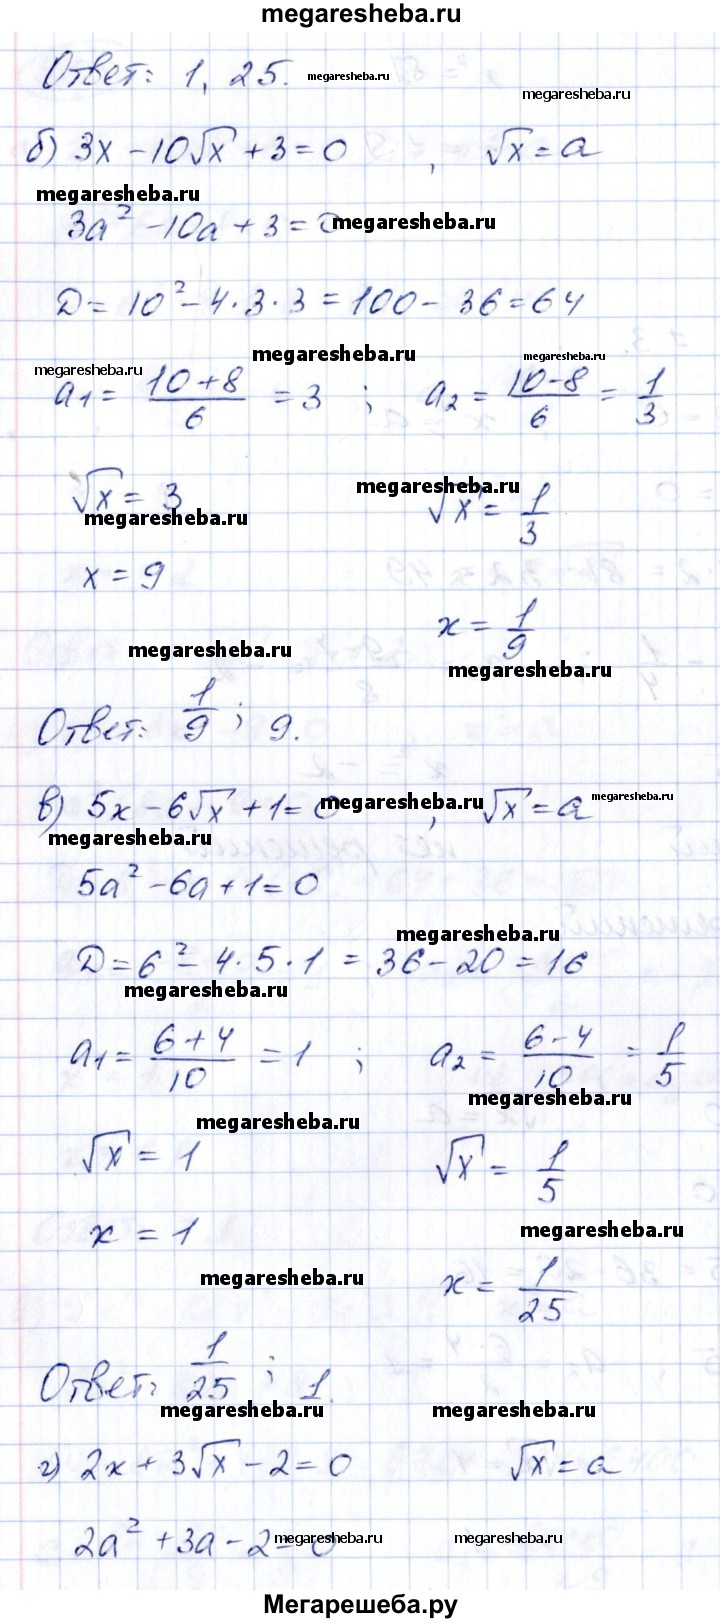 megaresheba.ru
Ответ: 1, 25. megaresheba.ru megaresheba.ru
б) 3x - 10√x + 3 = 0 , √x = a
megaresheba.ru
3a² - 10a + 3 = 0 megaresheba.ru
D = 10² - 4·3·3 = 100 - 36 = 64
megaresheba.ru megaresheba.ru megaresheba.ru
a₁ = (10+8)/6 = 3 ; a₂ = (10-8)/6 = 1/3
megaresheba.ru
√x = 3 √x = 1/3
megaresheba.ru
x = 9
x = 1/9
megaresheba.ru megaresheba.ru
Ответ: 1/9 ; 9.
в) 5x - 6√x + 1 = 0 , √x = a
megaresheba.ru megaresheba.ru megaresheba.ru
5a² - 6a + 1 = 0
megaresheba.ru
D = 6² - 4·5·1 = 36 - 20 = 16
megaresheba.ru
a₁ = (6+4)/10 = 1 ; a₂ = (6-4)/10 = 1/5
megaresheba.ru
megaresheba.ru
√x = 1 √x = 1/5
x = 1 megaresheba.ru
megaresheba.ru x = 1/25
Ответ: 1/25 ; 1.
megaresheba.ru megaresheba.ru
г) 2x + 3√x - 2 = 0 √x = a
2a² + 3a - 2 = 0 megaresheba.ru megaresheba.ru
Мегарешеба.ру